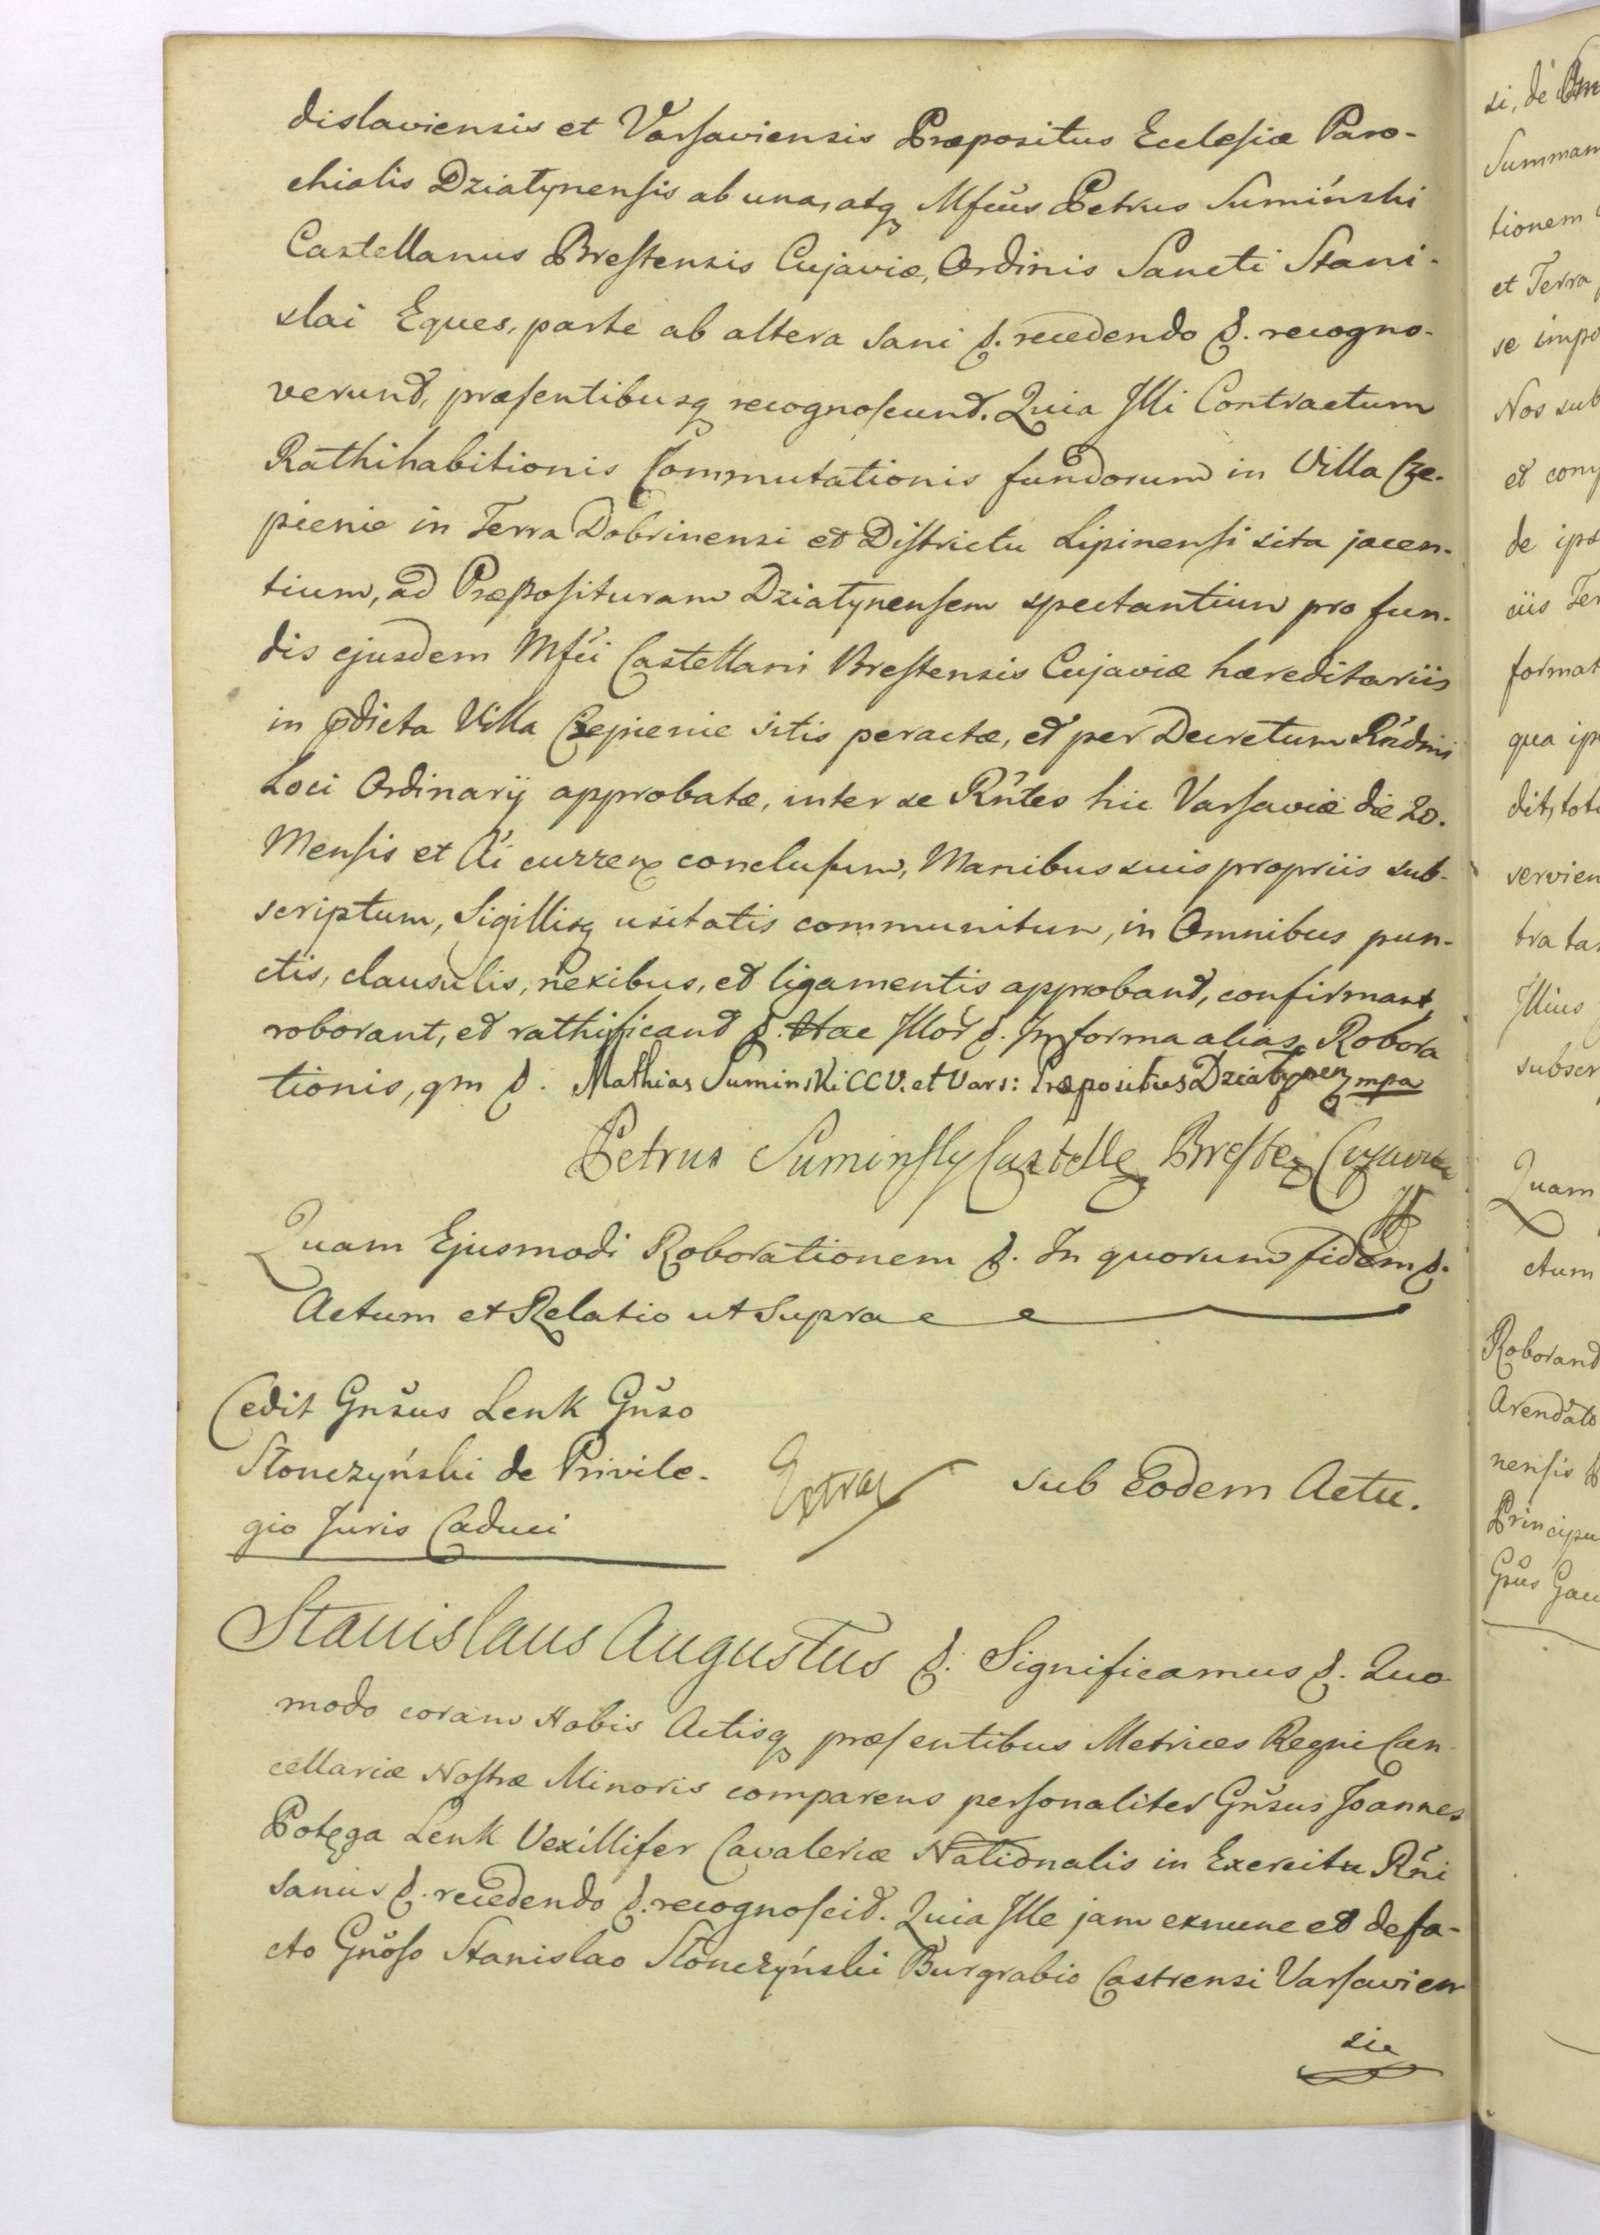 dislaviensis et Varsaviensis Præpositus Ecclesiæ Paro-
chialis Dziatynensis ab una, atq Mfcus Petrus Sumiński
Castellanus Brestensis Cujaviæ, Ordinis Sancti Stani-
slai Eques, parte ab altera sani &. recedendo &. recogno-
verunt, præsentibusq recognoscunt. Quia Illi Contractum
Rathihabitionis Commutationis fundorum in Villa Cze-
pienie in Terra Dobrinensi et Districtu Lipinensi sita jacen-
tium, ad Præposituram Dziatynensem spectantium pro fun-
dis ejusdem Mfci Castellani Brestensis Cujaviæ hæreditariis
in pdicta Villa Czepienie sitis peractæ, et per Decretum Rndmi
Loci Ordinarij approbatæ, inter se Rntes hic Varsaviæ die 20.
Mensis et Ai curren conclusum, Manibus suis propriis sub-
scriptum, Sigillisq usitatis communitum, in Omnibus pun-
ctis, clausulis, nexibus, et ligamentis approbant, confirmant,
roborant, et rathificant &. Hac Illor &. In forma alias Robora
tionis, qm &. Mathias Suminski CCV. et Vars: Præpositus Dziatynen mpa
Petrus Suminsky Castelle Brestez Cujaviæ
Quam Ejusmodi Roborationem &. In quorum fidem &.
Actum et Relatio ut Supra
Cedit Gnsus Lenk Gnso
Słonczyński de Privile-
gio Juris Caduci
Extrac
sub Eodem Actu.
Stanislaus Augustus &. Significamus &. Quo
modo coram Nobis Actisq præsentibus Metrices Regni Can
cellariæ Nostræ Minoris comparens personaliter Gnsus Joannes
Potęga Lenk Vexillifer Cavaleriæ Nationalis in Exercitu Rni
sanus &. recedendo &. recognoscit. Quia Ille jam exnunc et defa-
cto Gnoso Stanislao Słonczyński Burgrabio Castrensi Varsavien
sie
si, de
Summam
tionem
et Terra
se impo
Nos sub
et
de ips
ciis Ter
format
qua ip
dit, tot
servien
tra ta
Illius
subscr
Quam
ctum
Roborand
Arendato
nensis
Principu
Gnus Gau